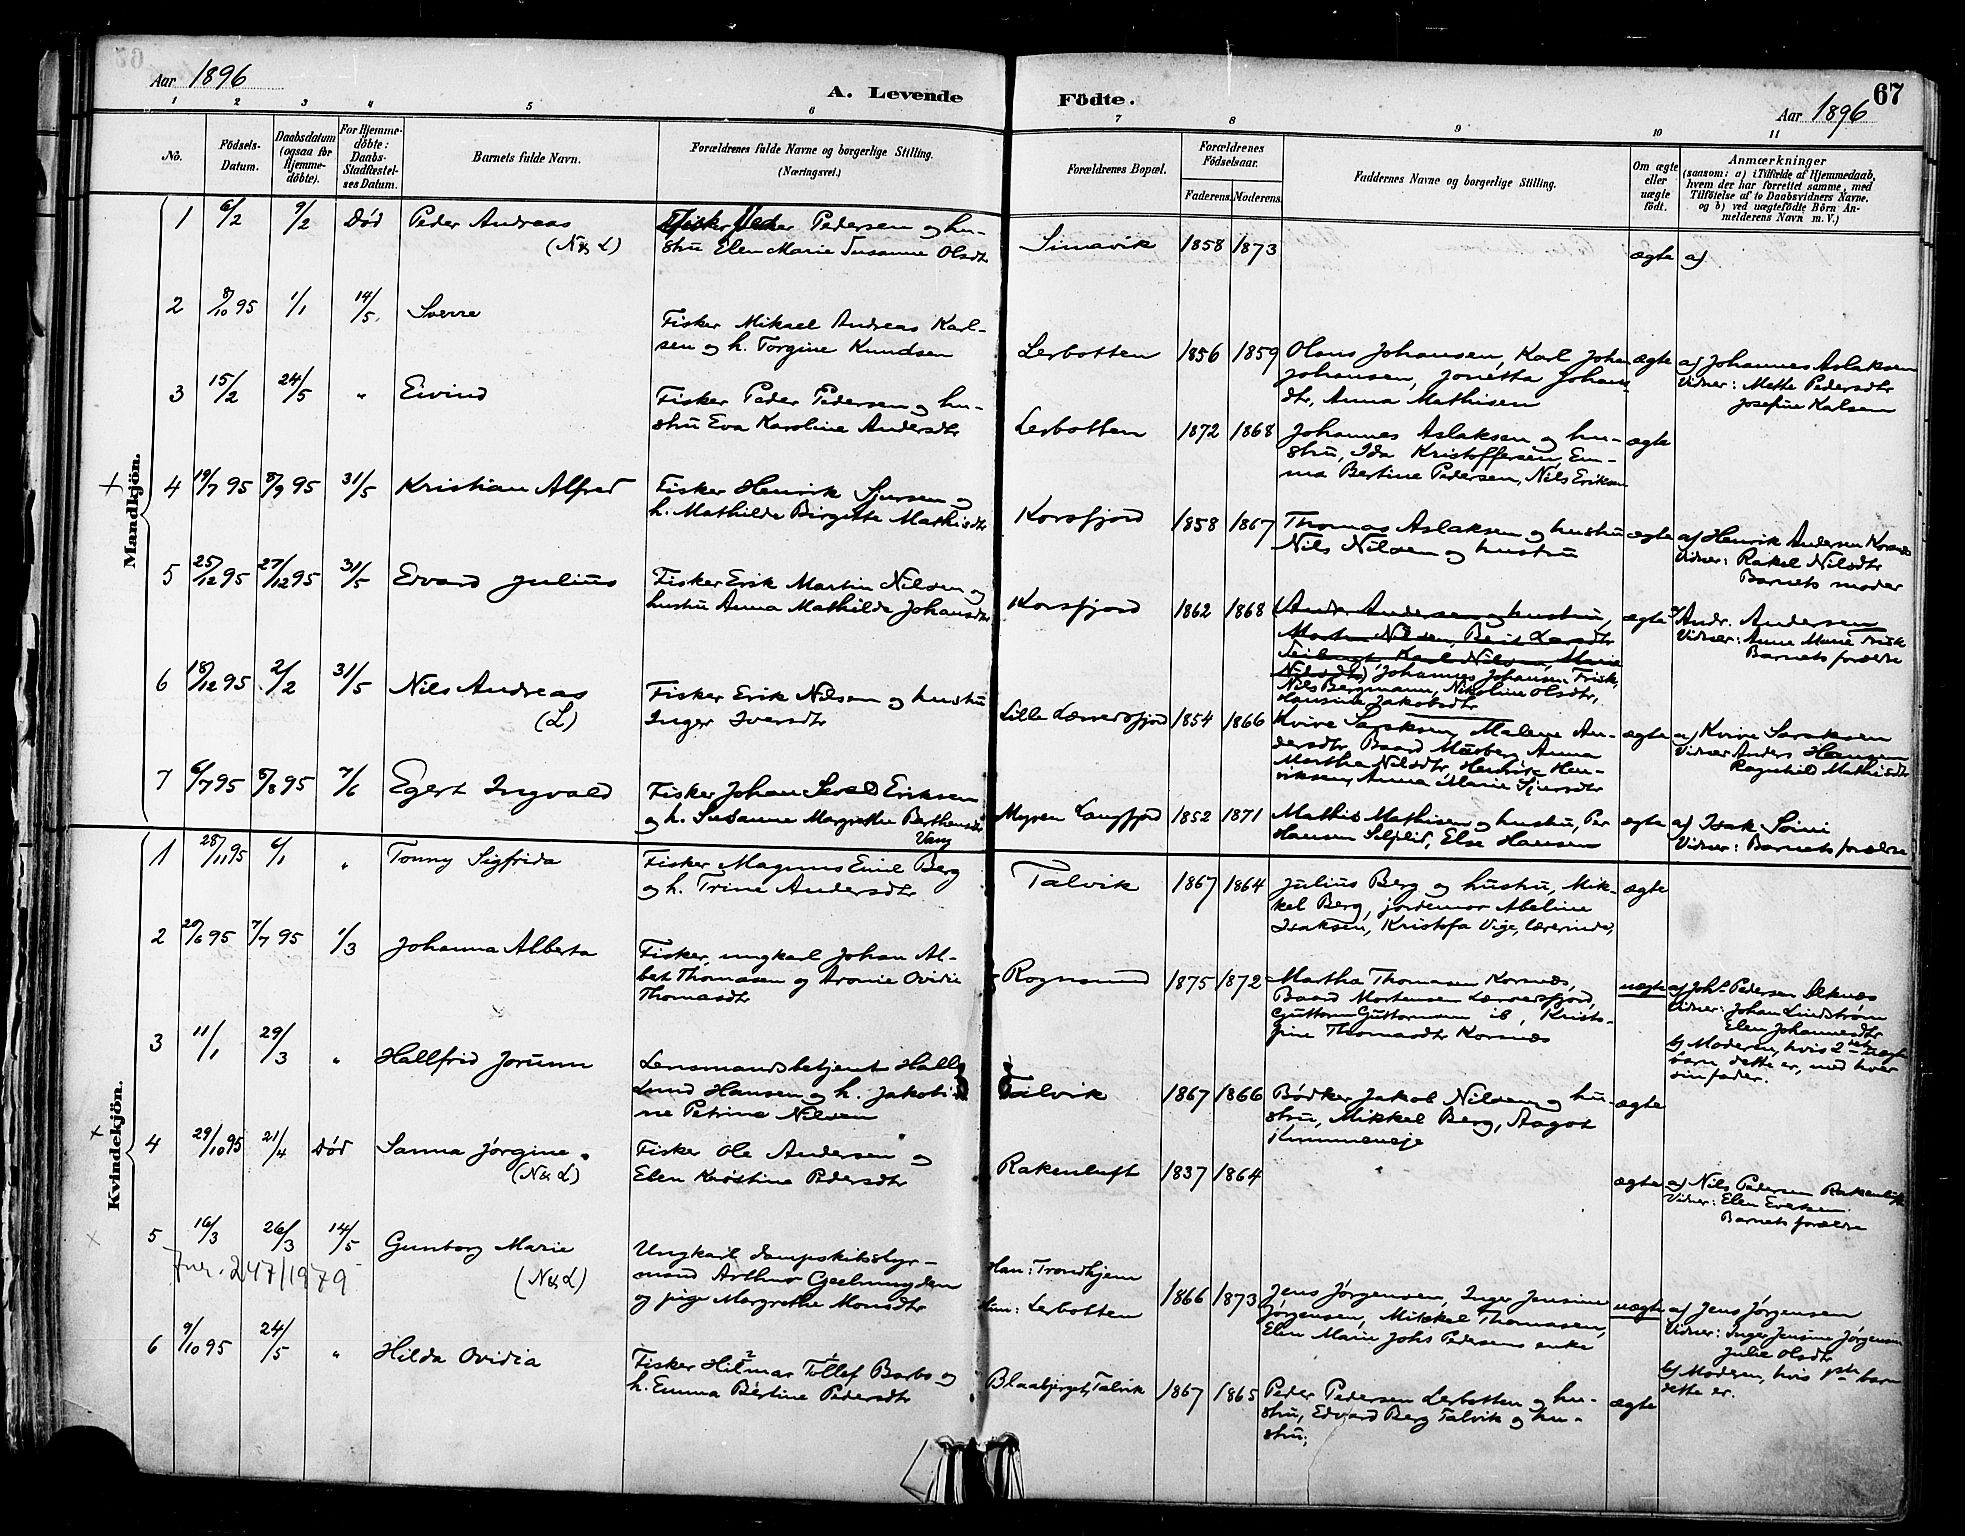 67
Aar 1896
A. Levende Födte.
Aar 1896
1 2 3 4 5 6 7 8 9 10 11
No.
Födsels-
Datum.
Daabsdatum
(ogsaa for
Hjemme-
döbte).
For Hjemme-
döbte:
Daabs-
Stadfæstel-
ses Datum.
Barnets fulde Navn.
Forældrenes fulde Navne og borgerlige Stilling.
(Næringsvei.)
Forældrenes Bopæl.
Forældrenes
Födselsaar.
Faderens. Moderens.
Faddernes Navne og borgerlige Stilling.
Om ægte
eller
uægte
födt.
Anmærkninger
(saasom: a) i Tilfælde af Hjemmedaab,
hvem der har forrettet samme, med
Tilföielse af to Daabsvidners Navne.
og b) ved uægtefödte Börn An-
melderens Navn m. V.)
Mandkjön.
1 6/2 9/2 Död Peder Andreas
(N & L)
Fisker Peder Pedersen og hu-
stru Elen Marie Susanne Olsdtr
Simavik 1858 1873 ægte a)
2 8/10 95 1/1 14/5. Sverre
Fisker Mikael Andreas Karl-
sen og h. Torgine Knudsen
Lerbotten 1856 1859
Olaus Johansen, Karl Johan
Johansen, Jonetta Johans
dtr, Anna Mathisen
ægte
a) Johannes Aslaksen
Vidner: Mette Pedersdtr
Josefine Karlsen
3 15/2 24/5 " Eivind
Fisker Peder Pedersen og hu-
stru Eva Karoline Andersdtr
Lerbotten 1872 1868
Johannes Aslaksen og hu-
stru, Ida Kristoffersen, Em-
ma Bertine Pedersen, Nils Eriksen
ægte
+ 4 19/7 95 8/9 95 31/5 Kristian Alfred
Fisker Henrik Sjursen og
h. Mathilde Birgitte Mathisdtr
Korsfjord 1858 1867
Thomas Aslaksen og hustru
Nils Nilsen og hustru
ægte
a) Henrik Andersen Korsnæs
Vidner: Rakel Nilsdtr
Barnets moder
5 25/12 95 27/12 95 31/5 Edvard Julius
Fisker Erik Martin Nilsen og
hustru Anna Mathilde Johansdtr
Korsfjord 1862 1868
Andr. Andersen og hustru,
Morten Nilsen, Berit Larsdtr
Karl Nilsen, Marie
Nilsdtr) Johannes Johansen Frisk,
Nils Bergmann, Nikoline Olsdtr,
Hansine Jakobsdtr
ægte
a) Andr. Andersen
Vidner: Anne Marie Frisk
Barnets forældre
6 18/12 95 2/2 31/5 Nils Andreas
(L)
Fisker Erik Nilsen og hustru
Inger Iversdtr
Lille Lerresfjord 1854 1866
Kvive Saraksen, Malene An-
dersdtr, Baard Madberg, Anna
Martha Nilsdtr, Henrik Hen-
riksen, Anna Marie Sjursdtr
ægte
a) Kvive Saraksen
Vidner Anders Hansen
Ragnhild Mathisdtr
7 6/7 95 8/8 95 7/6 Egert Ingvald
Fisker Johan Sevald Eriksen
og h. Susanne Margrethe Berthensdtr
Vang
Myren Langfjord 1852 1871
Mathis Mathisen og hustru, Per
Hansen Selflid, Else Hansen
ægte
a) Isak Soini
Vidner: Barnets forældre
Kvindekjön.
1 28/11 95 6/1 " Tonny Sigfrida
Fisker Magnus Emil Berg
og h. Trine Andersdtr
Talvik 1867 1864
Julius Berg og hustru, Mik-
kel Berg, jordemor Abeline
Isaksen, Kristofa Vige, lærerinde,
ægte
2 20/6 95 7/7 95 1/3 Johanna Alberta
Fisker, ungkarl Johan Al-
bert Thomasen og Aronie Ovidie
Thomasdtr
Rognsund 1875 1872
Martha Thomasen Korsnæs,
Baard Mortensen Lerresfjord,
Guttorm Guttormsen ib, Kristo-
fine Thomasdtr Korsnæs
uægte
a) Johs Pedersen Alknæs
Vidner: Johan Lindström
Elen Johannesdtr
b) Moderen, hvis 2det uægte
barn dette er, med hver
sin fader.
3 11/1 29/3 " Hallfrid Jorunn
Lensmandsbetjent Hall
Lund Hansen og h. Jakobi-
ne Petrine Nilsen
Talvik 1867 1866
Bödker Jakob Nilsen og hu-
stru, Mikkel Berg, Aagot
Kummeneje
ægte
+ 4 29/10 95 21/4 Död Sanna Jörgine.
(N & L)
Fisker Ole Andersen og
Elen Kristine Pedersdtr
Rakenluft 1837 1864 ægte
a) Nils Pedersen Rakenluft
Vidner: Elen Evertsen
Barnets forældre
x 5 16/3 26/3 14/5 Gunborg Marie
(N & L)
Jnr. 247/1979
Ungkarl, dampskibsstyr-
mand Arthur Gjelmuyden
og pige Margrethe Monsdtr
Han: Trondhjem
Hun: Lerbotten
1866 1873
Jens Jörgensen, Inger Jensine
Jörgensen, Mikkel Thomasen,
Elen Marie Johs Pedersens enke
uægte
a) Jens Jörgensen
Vidner: Inger Jensine Jörgensen
Julie Olsdtr
b) Moderen, hvis 1ste barn
dette er.
6 9/10 95 24/5 " Hilda Ovidia
Fisker Hilmar Tollef Barbo og
h. Emma Bertine Pedersdtr
Blaabjerget, Talvik 1867 1865
Peder Pedersen Lerbotten og hu-
stru, Edvard Berg Talvik og hu-
stru;
ægte